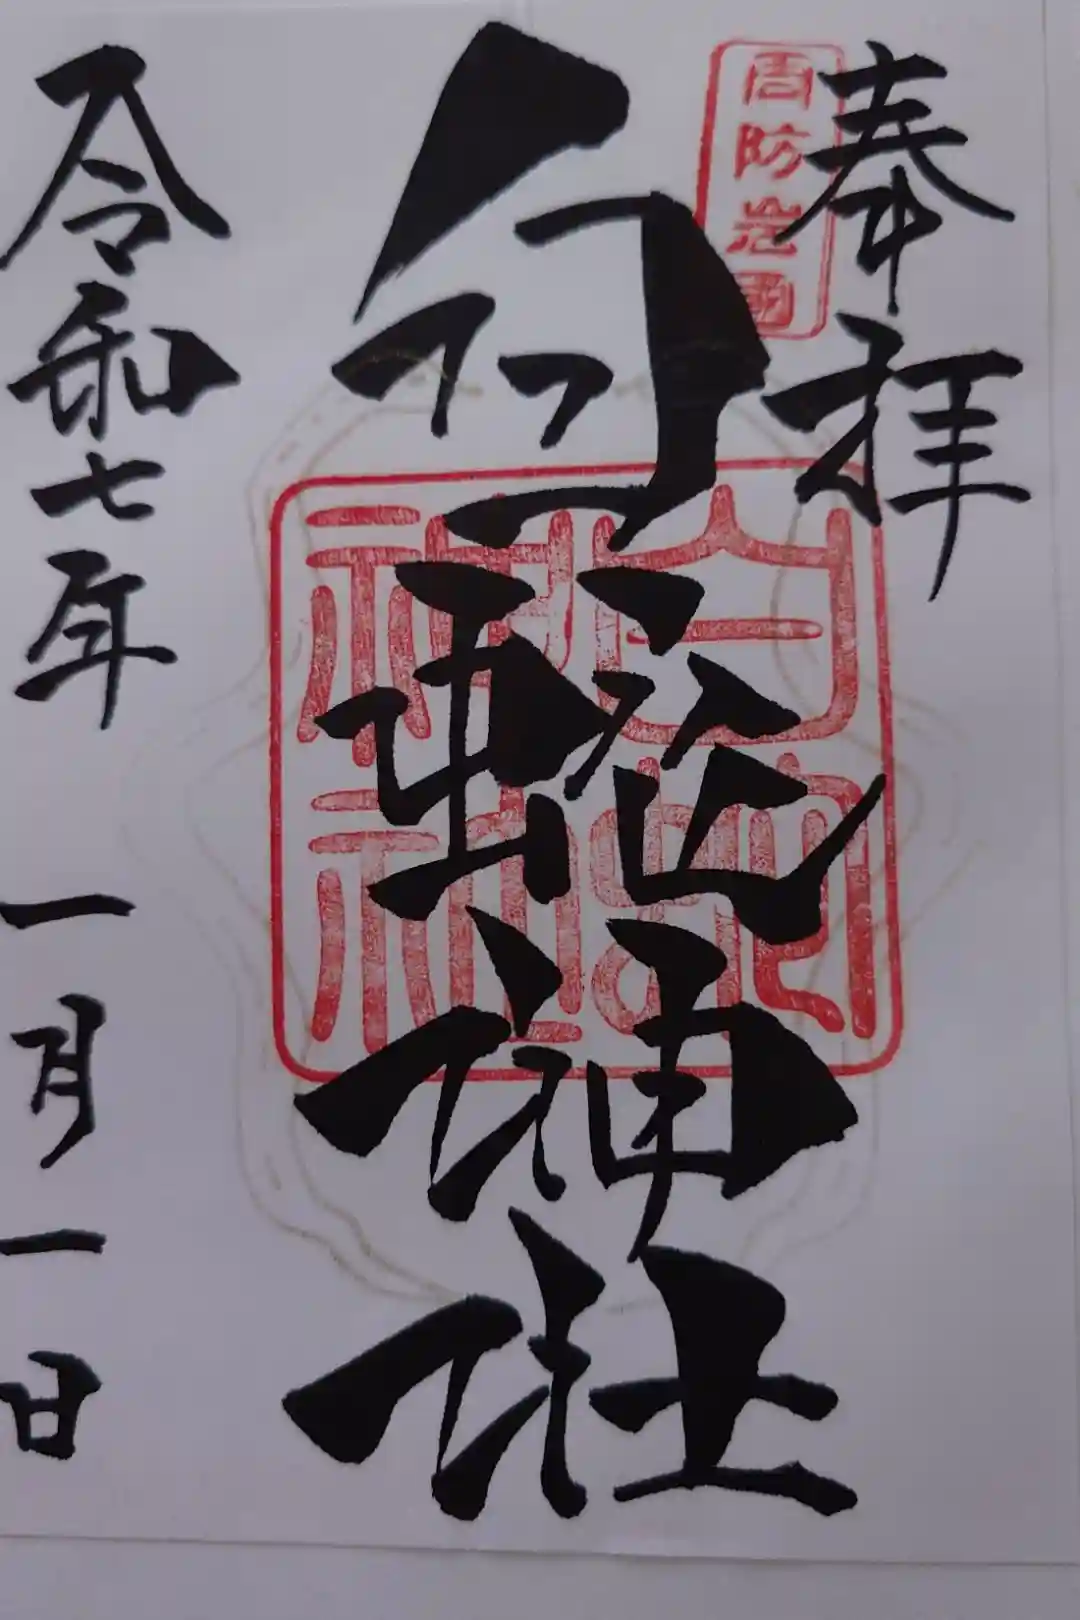 奉拝
周防岩國
白蛇神社
白蛇
神社
令和七年一月一日